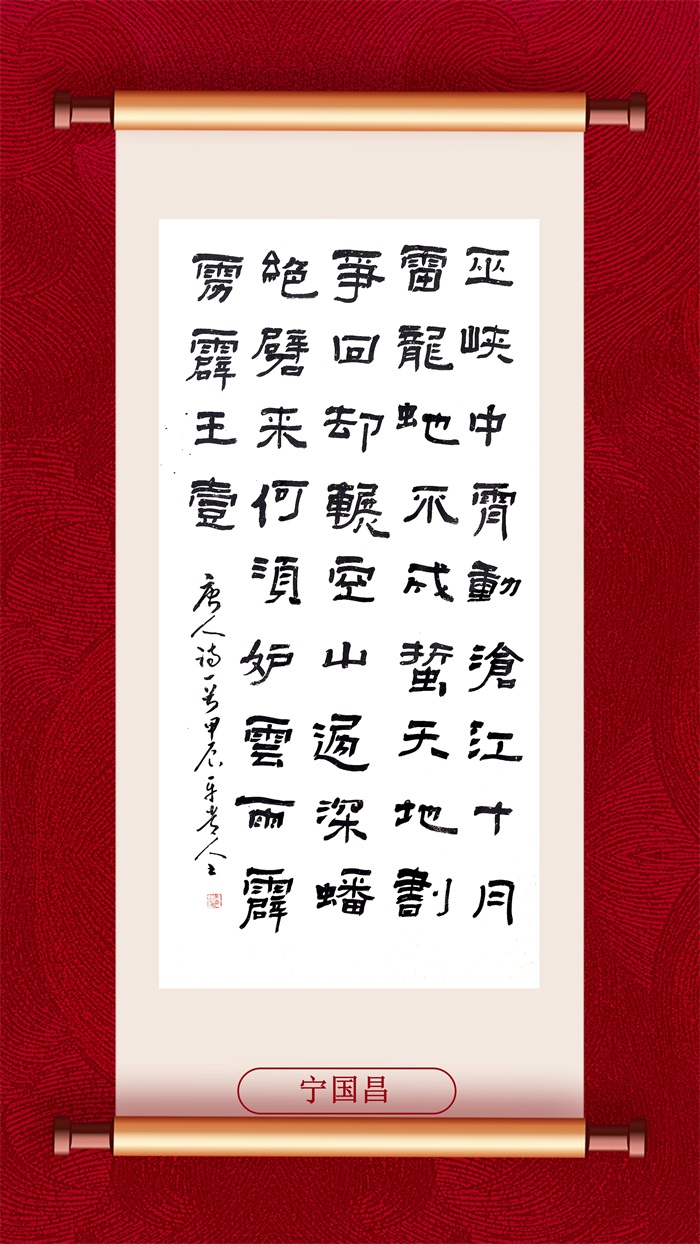 巫峽中霄動滄江十月
雷龍虵不成蟄天地劃
爭回却輾空山過深蟠
絶壁来何須妒雲雨霹
霹王壹
唐人诗一首甲辰
宁国昌